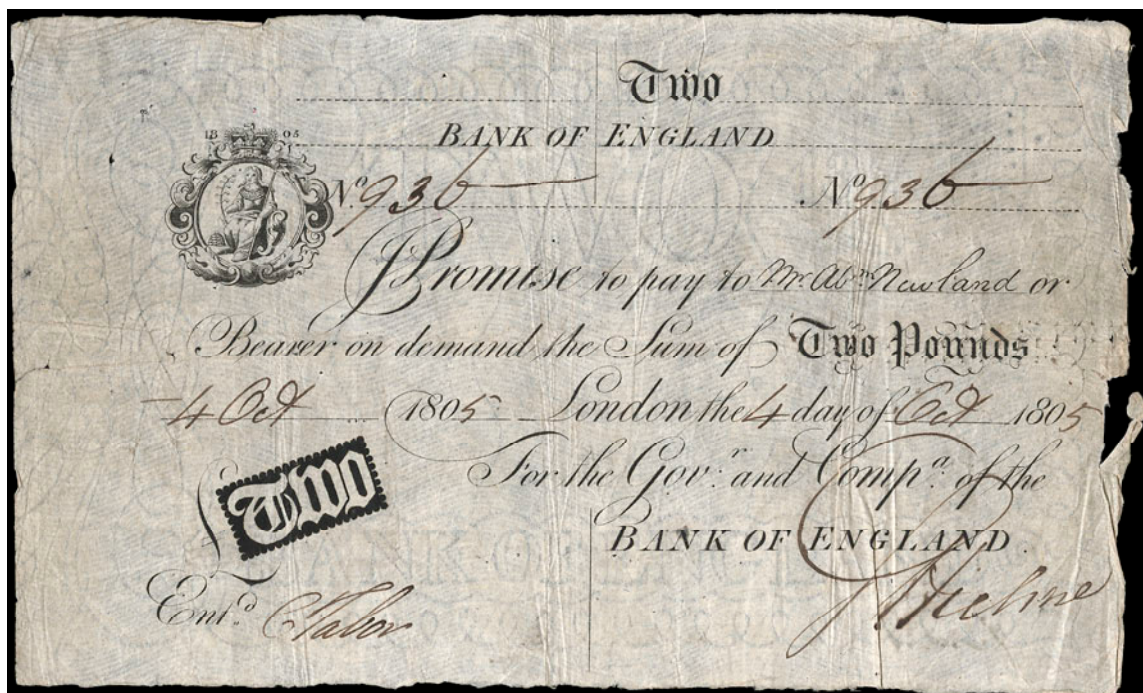 Two
BANK OF ENGLAND
18 05
No 936 No 936
I Promise to pay to Mr. Abm Newland or
Bearer on demand the Sum of Two Pounds
4 Oct 1805 London the 4 day of Oct 1805
For the Govr. and Compa. of the
£ Two
BANK OF ENGLAND
Entd. C Tabor